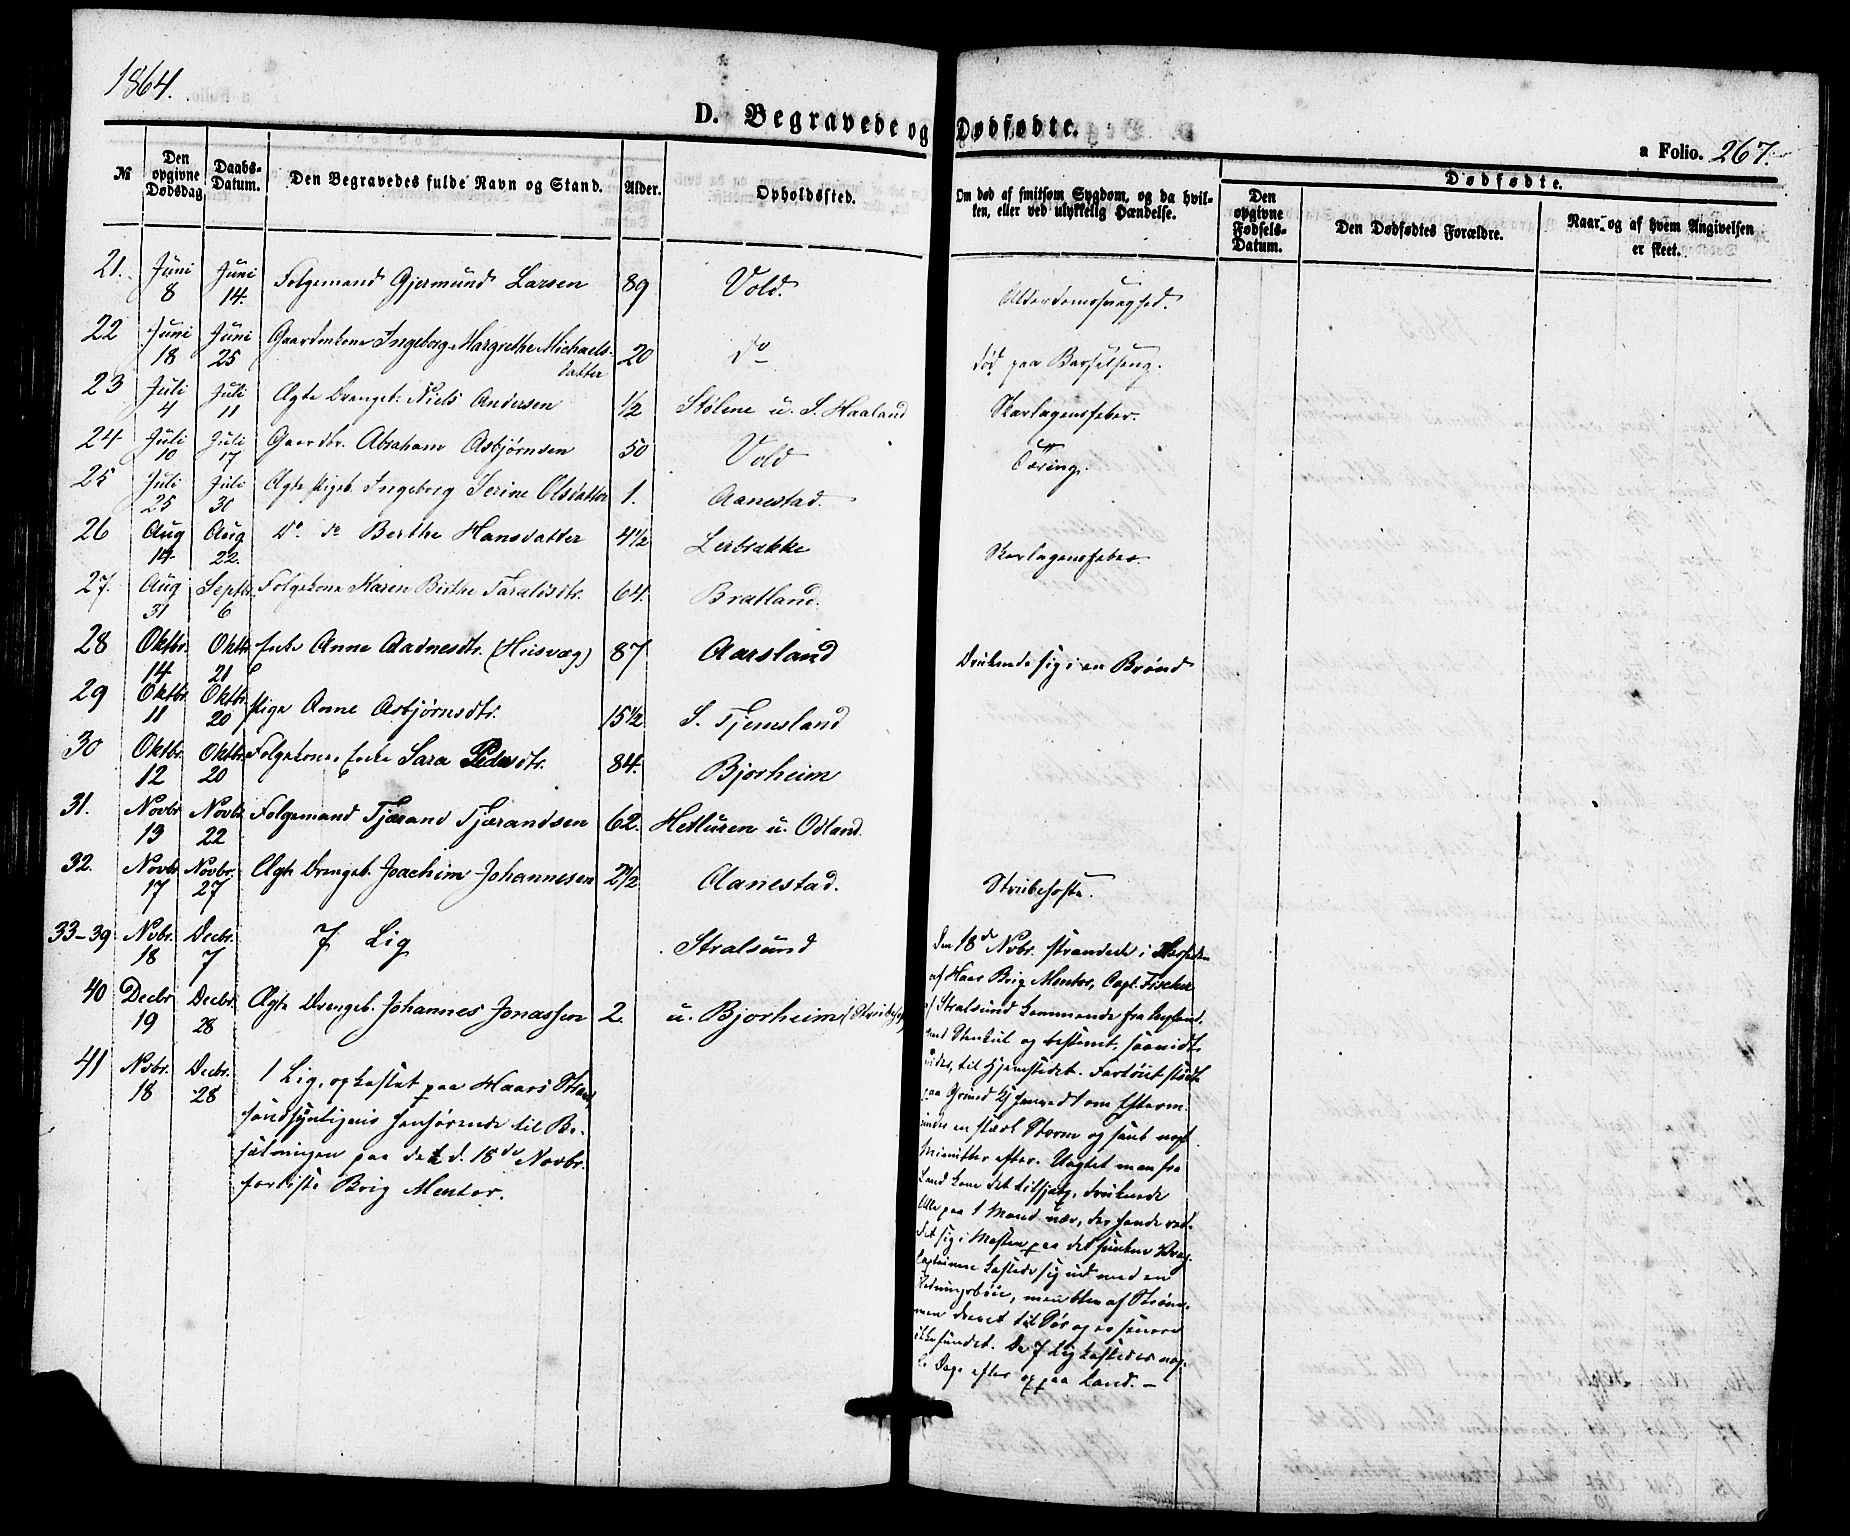 1864.
D. Begravede og Dødfødte.
a Folio. 267.
№ Den opgivne Dødsdag. Daabs-Datum. Den Begravedes fulde Navn og Stand. Alder. Opholdssted. Om død af smitsom Sygdom, og da hvilken, eller ved ulykkelig Hændelse. Dødfødte. Den opgivne Fødsels-Datum. Den Dødfødtes Forældre. Naar og af hvem Angivelsen er skeet.
21. Juni 8 Juni 14. Folgemand Gjermund Larsen 89 Vold. Alderdomssvaghed.
22 Juni 18 Juni 25 Gaardmkone Ingeborg Margrethe Michaelsdatter 20 do død paa Barselseng.
23 Juli 4 Juli 11 Ægte Drengeb. Niels Andersen 1/2 Stølene u. S. Haaland Skarlagensfeber.
24 Juli 10 Juli 17 Gaardbr. Abraham Asbjørnsen 50 Vold Tæring.
25 Juli 25 Juli 31 Ægte Pigeb. Ingeborg Serine Olsdatter 1. Aanestad.
26 Aug 14 Aug 22. Do do Berthe Hansdatter 4 1/2 Lerbrække Skarlagensfeber.
27. Aug 31 Septbr. 6 Folgekone Maren Birthe Taraldsdtr. 64. Bratland.
28 Oktbr. 14 Oktbr. 21 Enke Anne Aadnesdtr. (Husvæg) 87 Aarsland Druknede sig i en Brønd
29 Oktbr. 11 Oktbr. 20 Pige Anne Asbjørnsdtr. 15 1/2 S. Tjemsland
30 Oktbr. 12 Oktbr. 20 Folgekone, Enke Sara Pedersdtr. 84. Bjorheim
31. Novbr 13 Novbr. 22 Folgemand Tjærand Tjærandsen 62. Hetluren u. Odland.
32. Novbr 17 Novbr. 27 Ægte Drengeb. Joachim Johannesen 2 1/2 Aanestad. Strubehoste.
33-39 Nvbr. 18 Decbr. 7 7 Lig Stralsund
den 18de Nvbr. strandede i
af Haar Brig Mentor, Capt. Fischer
af Stralsund kommende fra Engeland.
med Steenkul og bestemt,
til Hjemstedet. Fartøiet stødte
paa Grund Kl om Efterm.
under en stærk Storm og sank
Minutter efter. Uagtet man fra
Land kom det til Hjælp, druknede
Alle paa 1 Mand nær, der havde red-
det sig i Masten paa det sunkne Vrag.
Capteinen kastede sig ud med en
Redningsbøie, men blev af Strøm-
men drevet til Søs og er senere
ikke fundet. De 7 Lig kastedes nog-
le Dage efter op paa Land. –
40 Decbr 19 Decbr. 28 Ægte Drengeb. Johannes Jonassen 2. u. Bjorheim (Strubehoste)
41 Nvbr. 18 Decbr. 28 1 Lig, opkastet paa Haars Strand,
sandsynligvis henhørende til Be-
sætningen paa det d. 18de Novbr.
forliste Brig Mentor.